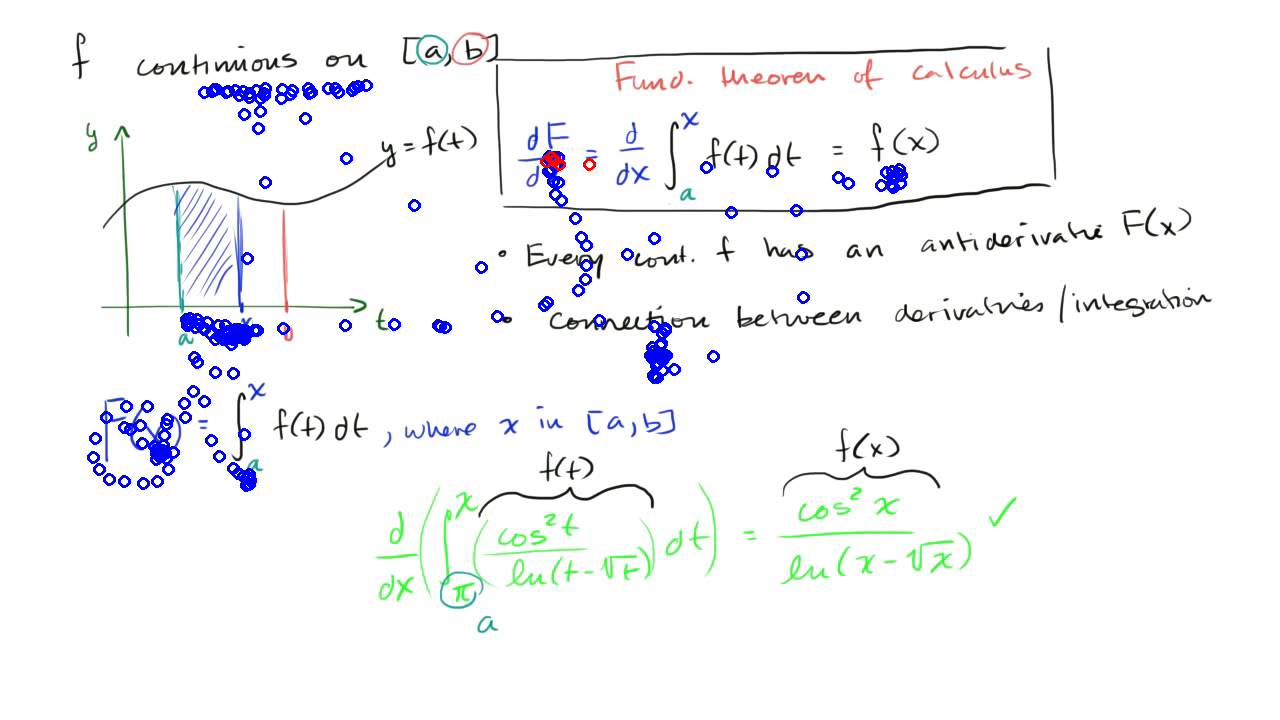 f continuous on [a, b]
Fund. theorem of calculus
dF/dx = d/dx ∫ₐˣ f(t) dt = f(x)
y
y = f(t)
a x b t
• Every cont. f has an antiderivative F(x)
• Connection between derivatives / integration
F(x) = ∫ₐˣ f(t) dt, where x in [a, b]
f(t) f(x)
d/dx ( ∫_π^x ( cos²t / ln(t-√t) ) dt ) = cos²x / ln(x-√x) ✓
a